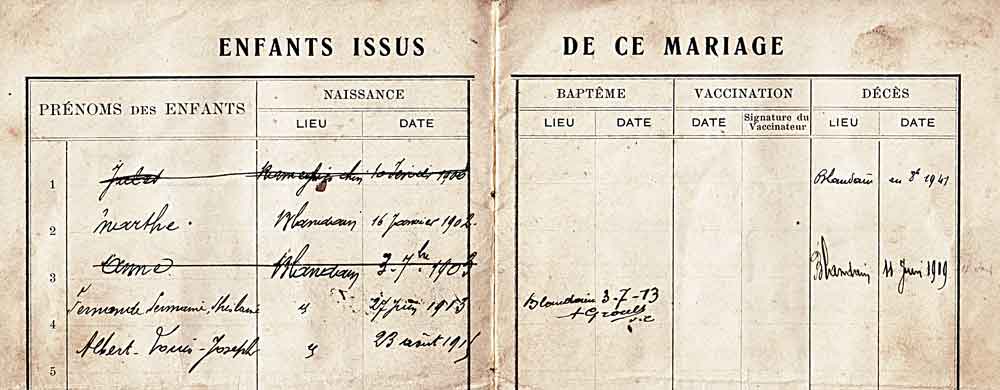 ENFANTS ISSUS DE CE MARIAGE
PRÉNOMS DES ENFANTS NAISSANCE BAPTÊME VACCINATION DÉCÈS
LIEU DATE LIEU DATE DATE Signature du Vaccinateur LIEU DATE
1 Jules 10 1941
2 Marthe. Blandain 16 Janvier 1902.
3 Anna Blandain 3-7bre 1903 Blandain 11 Juin 1919
4 Fernande Germaine Ghislaine " 27 juin 1913 Blandain 3-7-13
5 Albert-Louis-Joseph " 23 août 1915